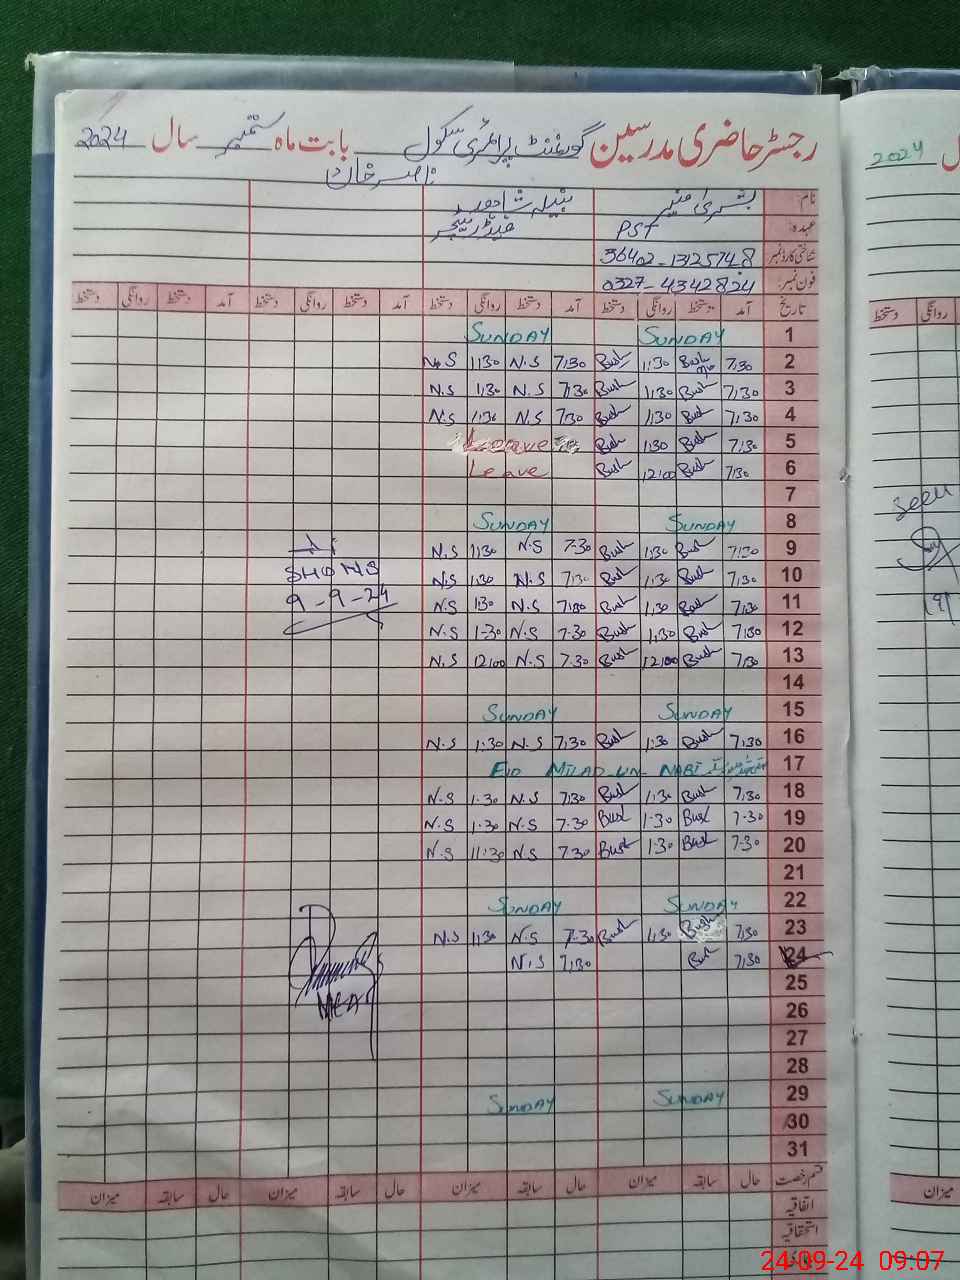 رجسٹر حاضری مدرسین گورنمنٹ پرائمری سکول بابت ماہ ستمبر سال 2024
ناصر خان
نام: بشریٰ منیر
عہدہ: PST
شناختی کارڈ نمبر
فون نمبر: 0327-4342824
تاریخ آمد دستخط روانگی دستخط آمد دستخط روانگی دستخط آمد دستخط روانگی دستخط آمد دستخط روانگی دستخط
1 SUNDAY SUNDAY
2 7:30 Bush 1:30 Bush 7:30 N.S 1:30 N.S
3 7:30 Bush 1:30 Bush 7:30 N.S 1:30 N.S
4 7:30 Bush 1:30 Bush 7:30 N.S 1:30 N.S
5 7:30 Bush 1:30 Bush Leave
6 7:30 Bush 12:00 Bush Leave
7
8 SUNDAY SUNDAY
9 7:30 Bush 1:30 Bush 7-30 N.S 1:30 N.S
10 7:30 Bush 1:30 Bush 7:30 N.S 1:30 N.S
11 7:30 Bush 1:30 Bush 7:30 N.S 1:30 N.S
9-9-24
12 7:30 Bush 1:30 Bush 7.30 N.S 1-30 N.S
13 7:30 Bush 12:00 Bush 7.30 N.S 12:00 N.S
14
15 SUNDAY SUNDAY
16 7:30 Bush 1:30 Bush 7:30 N.S 1:30 N.S
17 EID MILAD-UN-NABI
18 7:30 Bush 1:30 Bush 7:30 N.S 1.30 N.S
19 7.30 Bush 1.30 Bush 7.30 N.S 1.30 N.S
20 7.30 Bush 1:30 Bush 7.30 N.S 11:30 N.S
21
22 SUNDAY SUNDAY
23 7:30 Bush 1:30 Bush 7.30 N.S 1:30 N.S
24 7:30 Bush 7:30 N.S
25
26
27
28
29 SUNDAY SUNDAY
30
31
قسم رخصت حال سابقہ میزان حال سابقہ میزان حال سابقہ میزان حال سابقہ میزان
اتفاقیہ
استحقاقیہ
2024
دستخط روانگی
seen
میزان
24-09-24 09:07